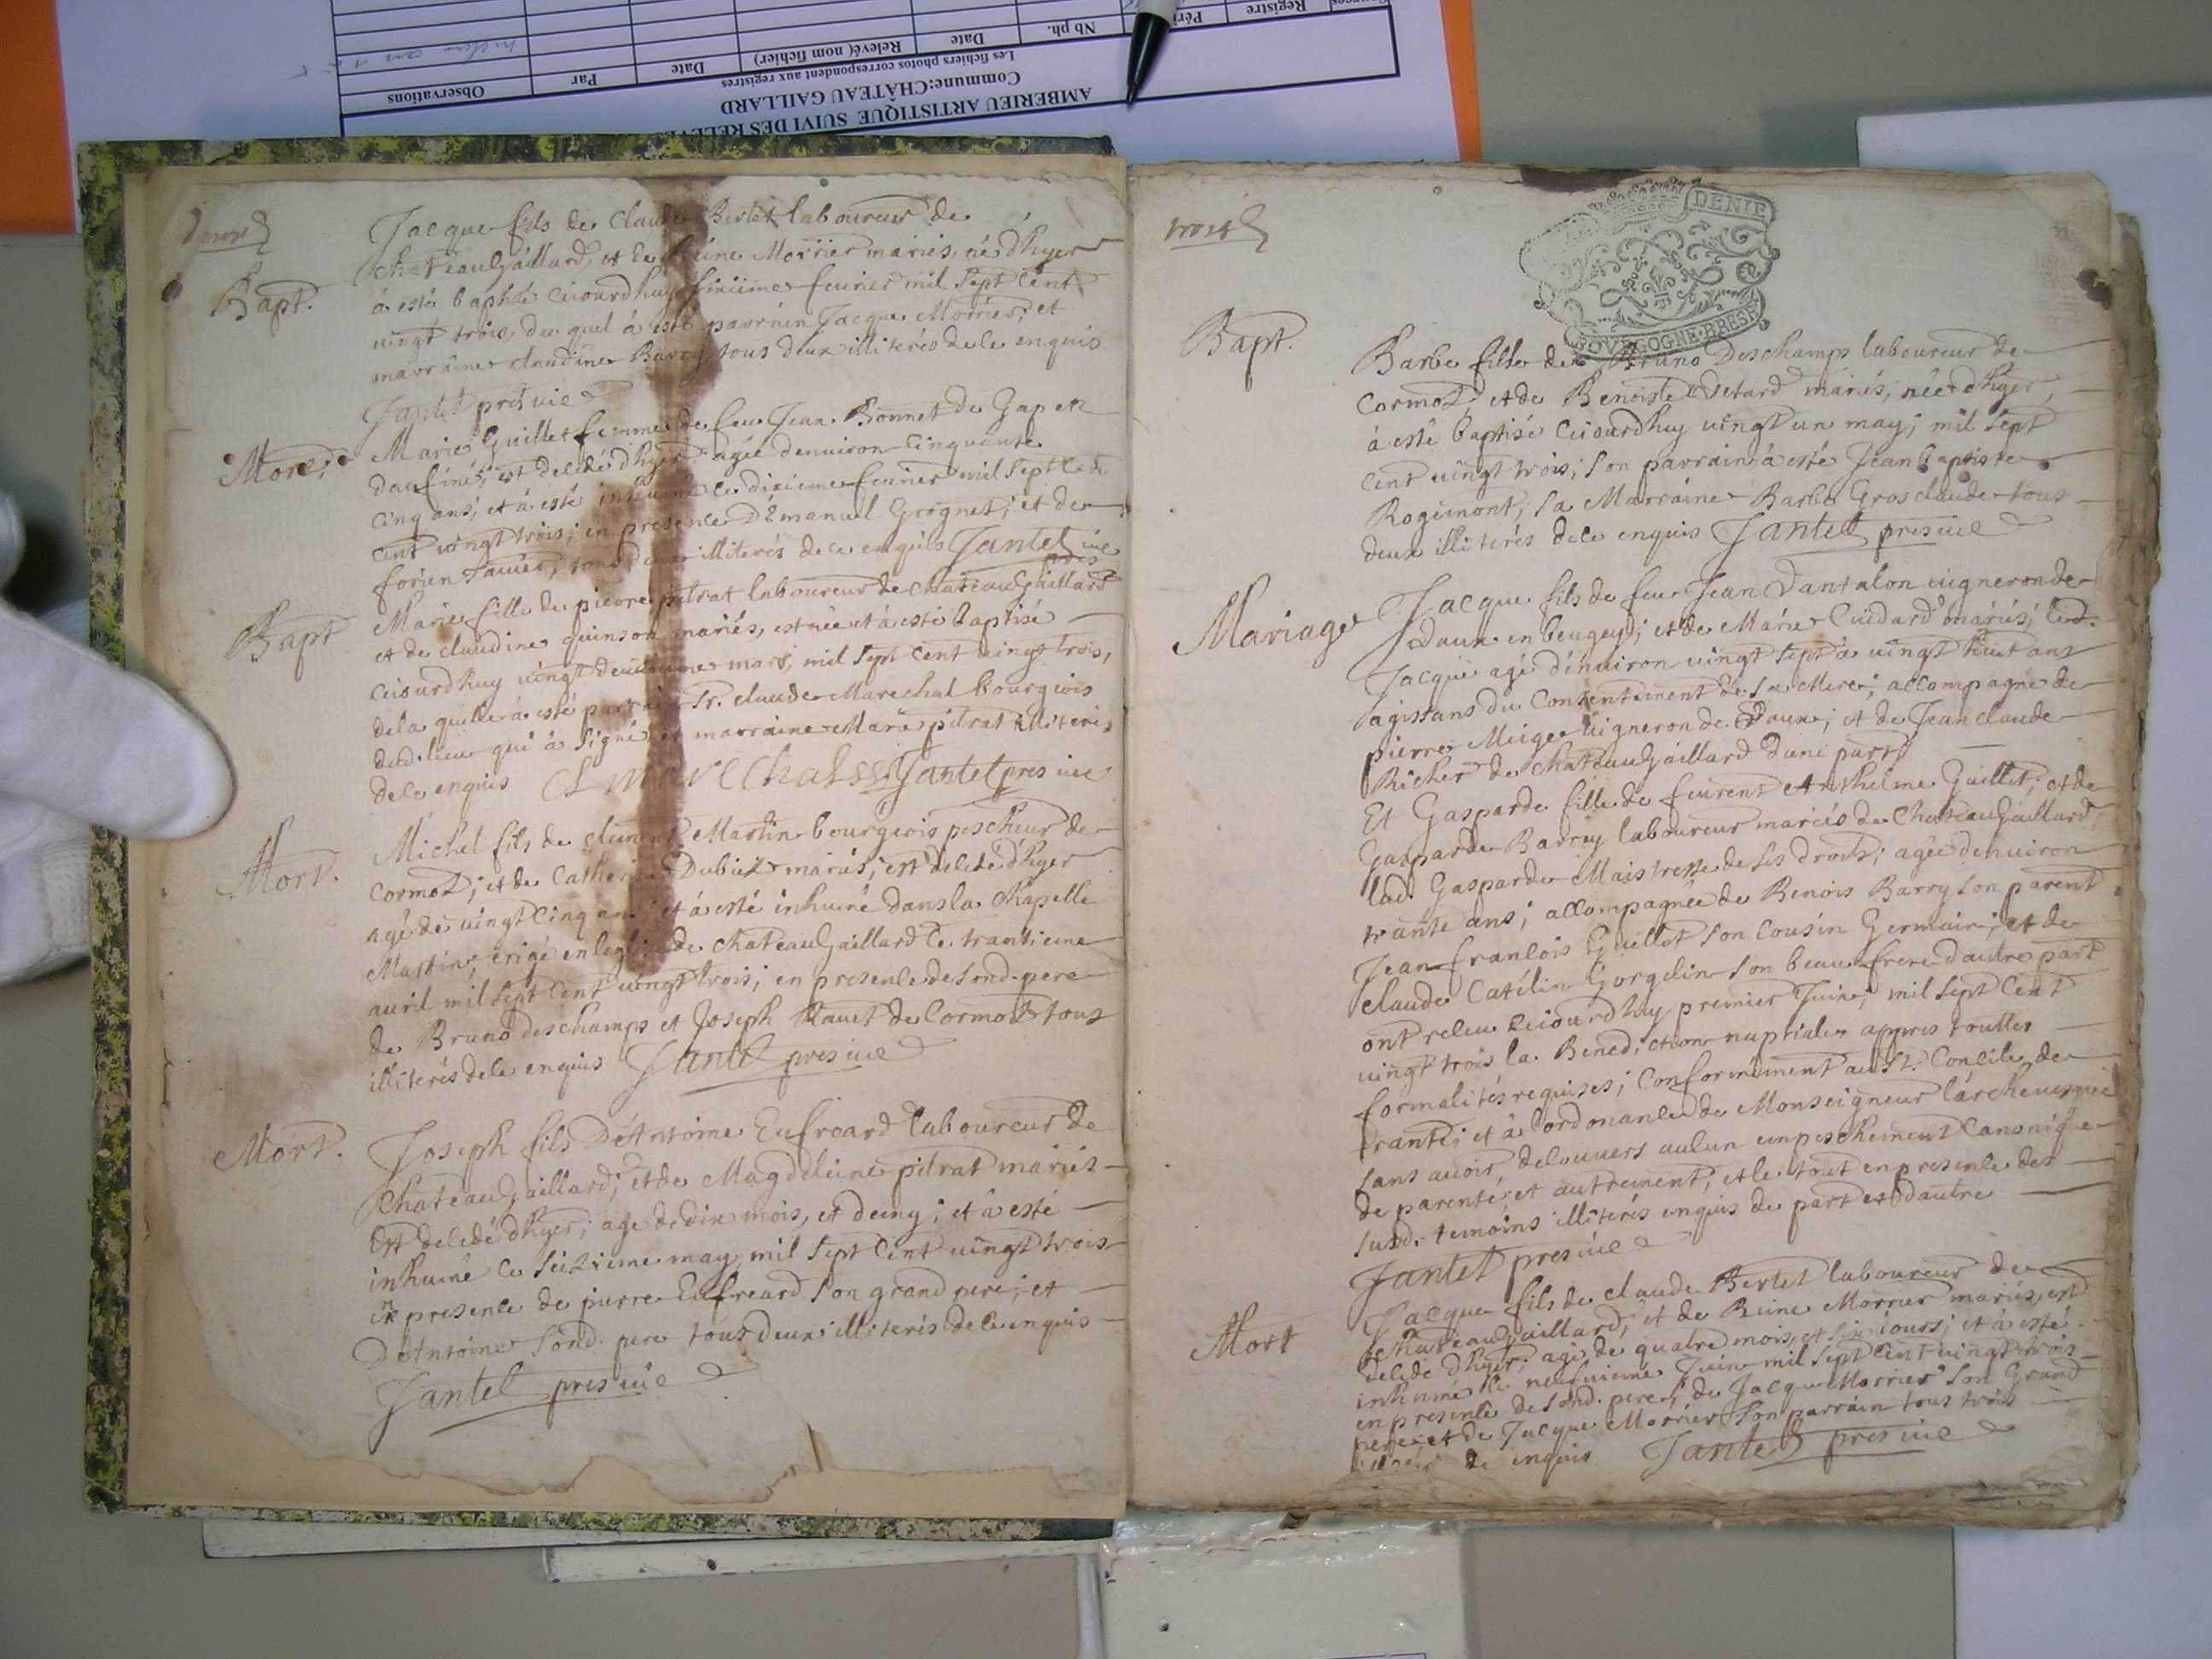 AMBERIEU ARTISTIQUE SUIVI DES RELEVES
Commune:CHÂTEAU GAILLARD
Les fichiers photos correspondent aux registres
Registre
Nb ph.
Date
Relevé( nom fichier)
Date
Par
Observations
Bapt.
Jacque fils de Claude Berlet laboureur de
chateauGaillard, et de Reine Morrier mariés, né d'hyer
à esté baptisé ciiourdhuy sixieme feurier mil sept cent
uingt trois, du quel à esté parrain Jacque Morrier, et
marraine claudine Barry tous deux illiterés de ce enquis
Jantet pres uic
Mort.
Marie Guillet femme de feu Jean Bonnet de Gap en
Daufiné, est decedé d'hyer agée denuiron cinquante
cinq ans, et à esté inhumé ce dixieme feurier mil sept cen
cent uingt trois; en presence D'Emanuel Grognet; et de
tous deux illiterés de ce enquis Jantet uic
pres
Bapt
Marie fille de pierre pitrat laboureur de chateauGaillard
et de claudine quinson mariés, est née et à esté baptisé
ciiourdhuy uingt deuxieme mars, mil sept cent uingt trois,
de la quelle à esté parrain Sr. claude Marechal bourgeois
dud. lieu qui à signé, et marraine Marie pitrat illiteré,
de ce enquis Jantet pres uic
Mort.
Michel fils de clement Martin bourgeois pescheur de
Cormoz; et de Catherine Dubiez mariés; est decedé d'hyer
agé de uingt cinq ans; et à esté inhumé dans la chapelle
Martin, erigé en leglise de chateauGaillard ce trantieme
auril mil sept cent uingt trois; en presence de sond. pere
de Bruno deschamps et Joseph Rauet de Cormoz tous
illiterés de ce enquis Jantet pres uic
Mort.
Joseph fils D'Antoine Eufreard laboureur de
chateauGaillard; et de Magdeleine pitrat mariés
est decedé d'hyer; agé de dix mois, et demy; et à esté
inhumé ce seizieme may mil sept cent uingt trois
en presence de pierre Eufreard son grand pere; et
D'Antoine sond. pere tous deux illiterés de ce enquis
Jantet pres uic
trois
DENIE
BOVRGOGNE·BRESE
Bapt.
Barbe fille de Bruno Deschamps laboureur de
Cormoz, et de Benoiste Detard mariés, née d'hyer,
à esté baptisé ciiourdhuy uingt un may; mil sept
cent uingt trois; son parrain à esté Jean baptiste
Rogimont; sa Marraine Barbe Grosclaude tous
deux illiterés de ce enquis Jantet pres uic
Mariage
Jacque fils de feu Jean Dantalon uigneron de
Daux en beugey; et de Marie Cuidard mariés; led.
Jacque agé denuiron uingt sept à uingt huit ans
agissans du consentement de sa Mere; accompagné de
pierre Miege uigneron de Daux; et de Jean claude
Richer de chateauGaillard dune part
Et Gasparde fille de feurent Anthelme Guillet; et de
Gasparde Barry laboureur mariés de chateauGaillard,
lad. Gasparde Maistresse de ses droits; agée denuiron
trante ans; accompagnée de Benois Barry son parent
Jean francois Guillet son cousin Germain; et de
claude Catélin Gorgelin son beau frere dautre part
ont receu ceiourdhuy premier Juin; mil sept cent
uingt trois la Benediction nuptiale appres touttes
formalités requises; Conformement au St. Concile de
trante; et à lordonance de Monseigneur l'archeuesque
sans auoir decouuers aucun empeschement Canonique
de parenté, et autrement; et le tout en presence des
susd. temoins illiterés enquis de part et dautre
Jantet pres uic
Mort
Jacque fils de claude Berlet laboureur de
chateauGaillard, et de Reine Morrier mariés, est
decedé d'hyer; agé de quatre mois et six iours; et à esté
inhumé le neufuieme Juin mil sept cent uingt trois
en presence de sond. pere; de Jacque Morrier son Grand
pere; et de Jacque Morrier son parrain tous trois
de enquis Jantet pres uic